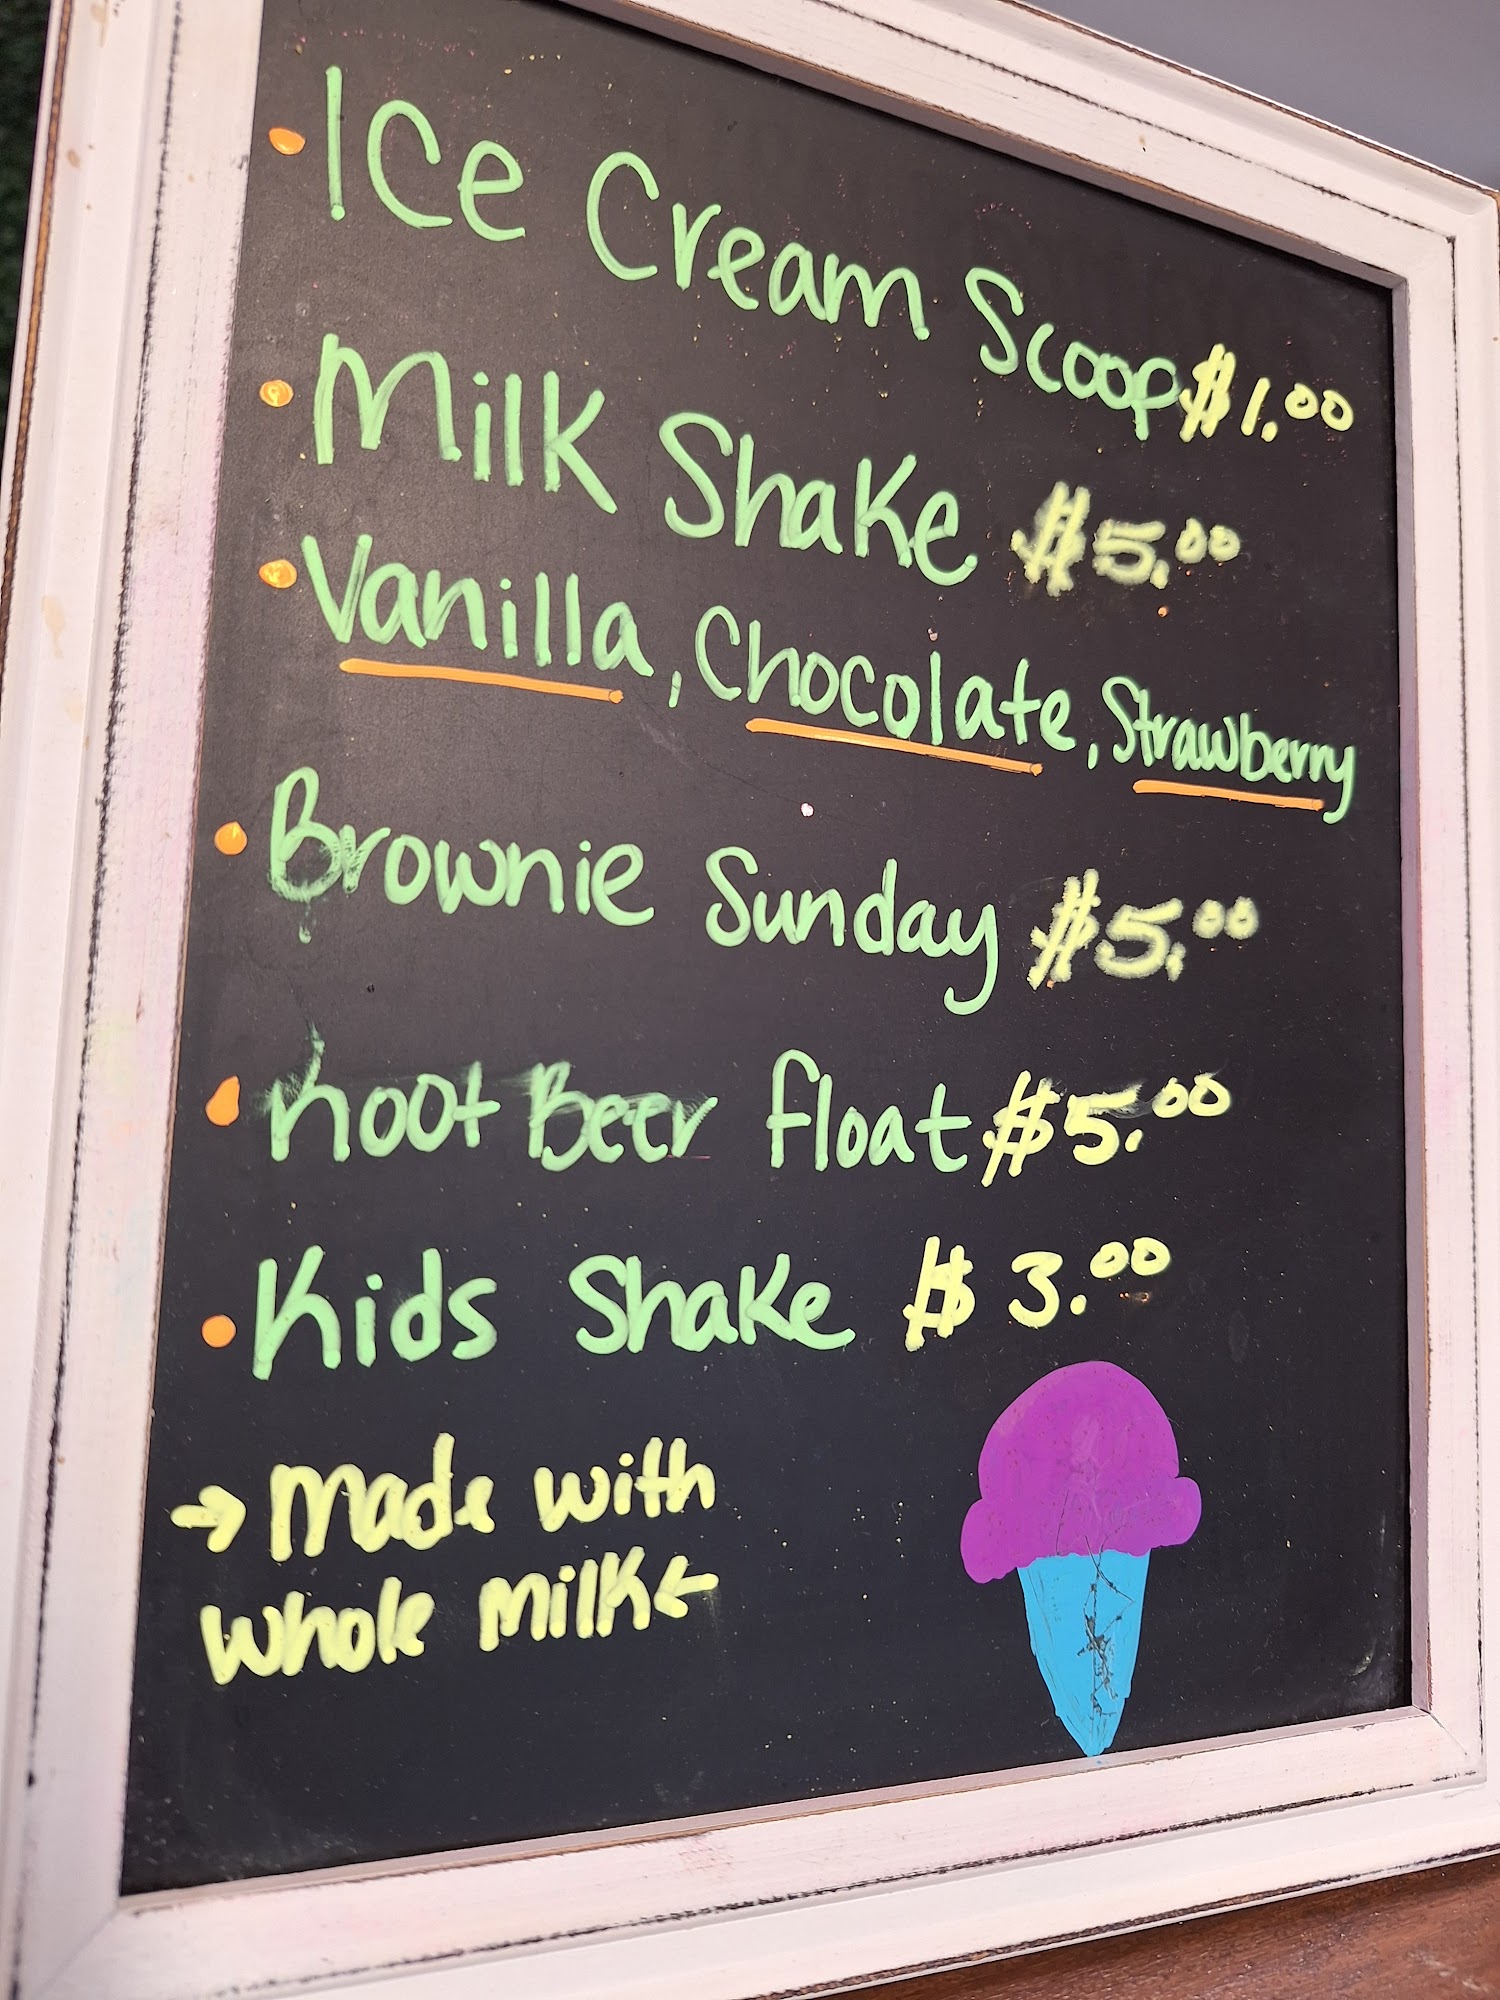 • Ice Cream Scoop $1.00
• Milk Shake $5.00
• Vanilla, Chocolate, Strawberry
• Brownie Sunday $5.00
• Root Beer float $5.00
• Kids Shake $3.00
→ made with
whole milk ←